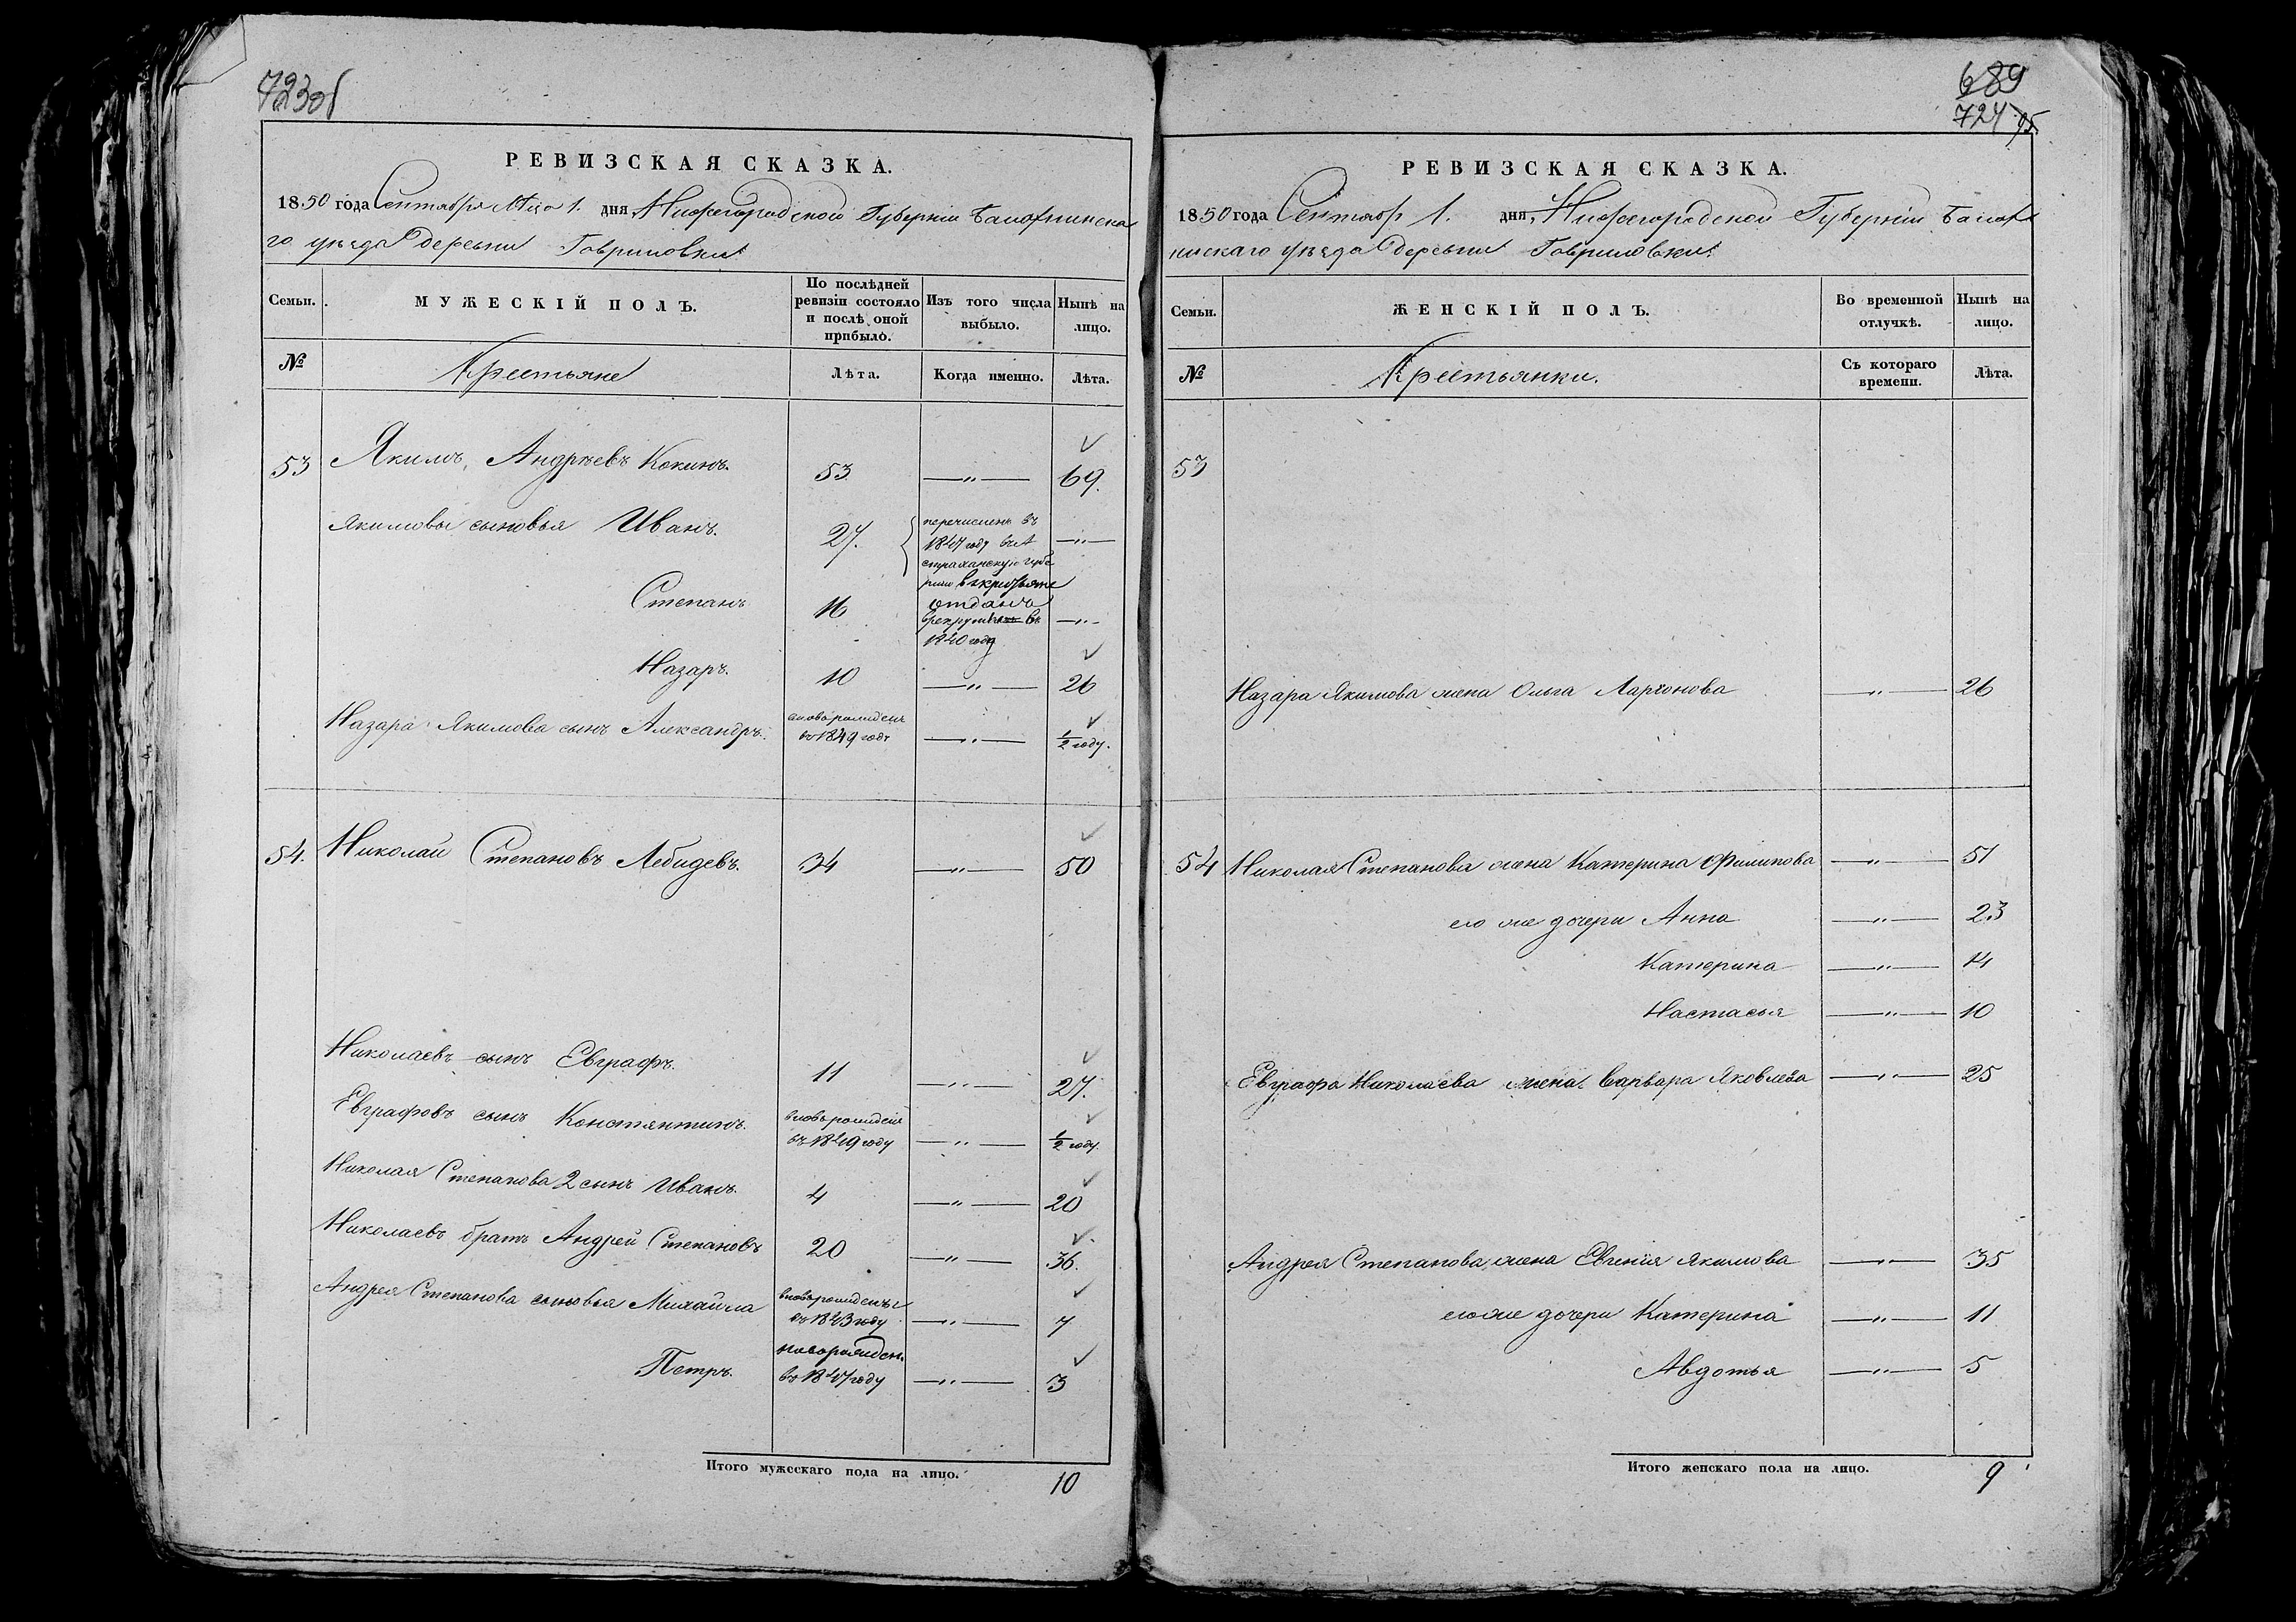 723об
РЕВИЗСКАЯ СКАЗКА.
1850 года Сентября М-ца 1. дня, Нижегородской Губерніи Балахнинска
го уѣзда деревни Гавриловки
Семьи.
МУЖЕСКІЙ ПОЛЪ.
По послѣдней
ревизіи состояло
и послѣ оной
прибыло.
Изъ того числа
выбыло.
Нынѣ на
лицо.
№
Крестьяне
Лѣта.
Когда именно.
Лѣта.
53 Якимъ Андреевъ Кокинъ. 53 —„— 69.
Якимовы сыновья Иванъ. 27. перечисленъ въ
1847 году въ А
страханскую губе
рнію въ крестьяне —„—
Степанъ 16 отданъ
в рекруты въ
1840 году —„—
Назаръ. 10 —„— 26
Назара Якимова сынъ Александръ. вновь рожденъ
въ 1849 годѵ —„— 1/2 году.
54. Николай Степановъ Лебидевъ. 34 —„— 50
Николаевъ сынъ Евграфъ. 11 —„— 27.
Евграфовъ сынъ Константинъ. вновь рожденъ
въ 1849 году —„— 1/2 году.
Николая Степанова 2 сынъ Иванъ. 4 —„— 20
Николаевъ братъ Андрей Степановъ 20 —„— 36.
Андрея Степанова сыновья Михайла вновь рожденъ
въ 1843 году —„— 7
Петръ. новорожден.
въ 1847 году —„— 3
Итого мужескаго пола на лицо. 10
689
724
95
РЕВИЗСКАЯ СКАЗКА.
1850 года Сентяб 1. дня, Нижегородской Губерніи Балах
нинскаго уѣзда деревни Гавриловки
Семьи.
ЖЕНСКІЙ ПОЛЪ.
Во временной
отлучкѣ.
Нынѣ на
лицо.
№
Крестьянки.
Съ котораго
времени.
Лѣта.
53
Назара Якимова жена Ольга Ларіонова —„— 26
54 Николая Степанова жена Катерина Филипова —„— 51
его же дочери Анна —„— 23
Катерина —„— 14
Настасья —„— 10
Евграфа Николаева жена Варвара Яковлева —„— 25
Андрея Степанова жена Евгенія Якимова —„— 35
его же дочери Катерина —„— 11
Авдотья —„— 5
Итого женскаго пола на лицо. 9